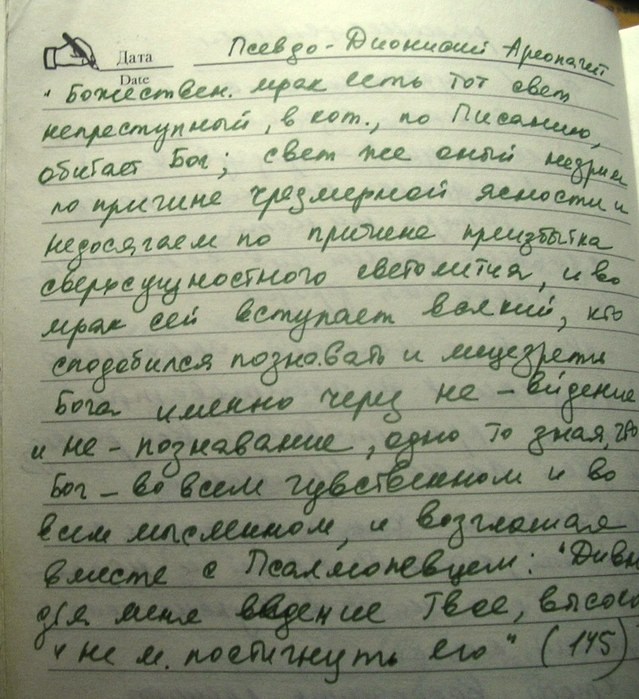 Дата
Date
Псевдо-Дионисий Ареопагит
" Божествен. мрак есть тот свет
непреступный, в кот., по Писанию,
обитает Бог; свет же оный незрим
по причине чрезмерной ясности и
недосягаем по причине преизбытка
сверхсущностного светолития, и во
мрак сей вступает всякий, кто
сподобился познавать и лицезреть
Бога именно через не-вИдение
и не-познавание, одно то зная, что
Бог - во всем чувственном и во
всем мысленном, и возглашая
вместе с Псалмопевцем: "Дивно
для меня ведение Твое, высоко
и не м. постигнуть его" (145)